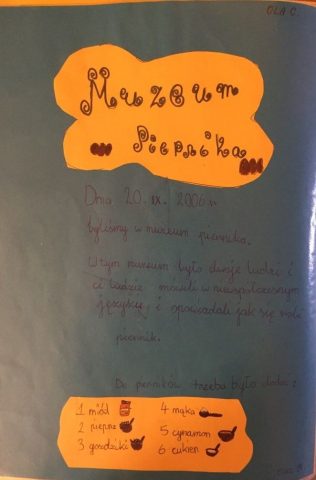 OLA O.
Muzeum
Piernika
Dnia 20. IX. 2006 r.
byliśmy w muzeum piernika.
W tym muzeum było dwoje ludzi i
ci ludzie mówili w niewspółczesnym
języku, i opowiadali jak się robi
piernik.
Do pierników trzeba było dodać:
1 miód
4 mąka
2 pieprz
5 cynamon
3 goździki
6 cukier